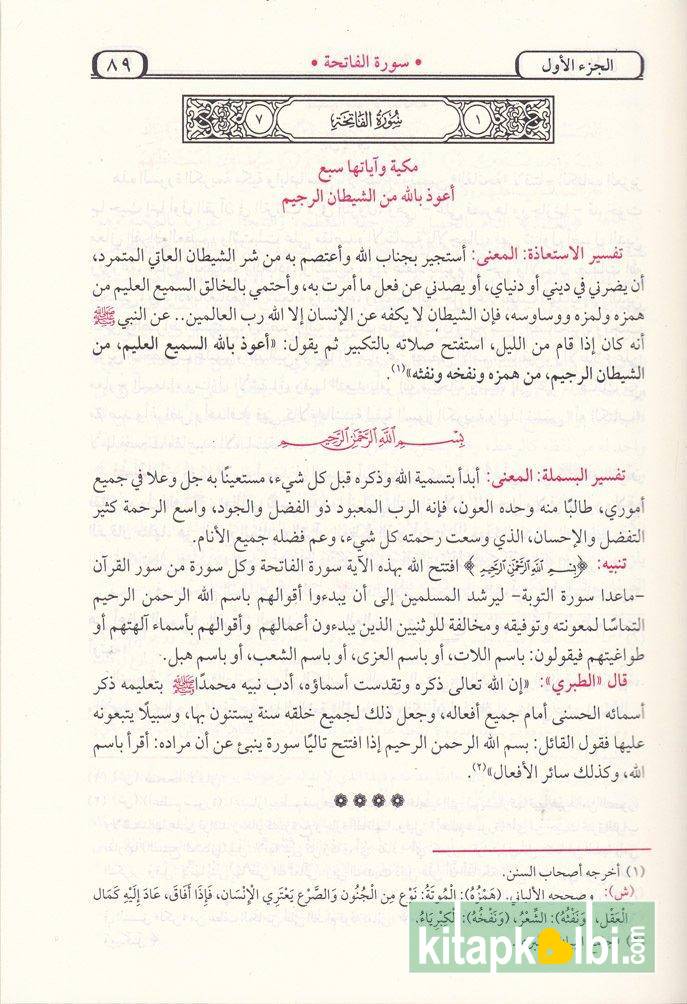 الجزء الأول
• سورة الفاتحة •
٨٩
١
سُورَةُ الفَاتِحَةِ
٧
مكية وآياتها سبع
أعوذ بالله من الشيطان الرجيم
تفسير الاستعاذة: المعنى: أستجير بجناب الله وأعتصم به من شر الشيطان العاتي المتمرد،
أن يضرني في ديني أو دنياي، أو يصدني عن فعل ما أمرت به، وأحتمي بالخالق السميع العليم من
همزه ولمزه ووساوسه، فإن الشيطان لا يكفه عن الإنسان إلا الله رب العالمين.. عن النبي ﷺ
أنه كان إذا قام من الليل، استفتح صلاته بالتكبير ثم يقول: «أعوذ بالله السميع العليم، من
الشيطان الرجيم، من همزه ونفخه ونفثه»(١).
بِسْمِ اللَّهِ الرَّحْمَٰنِ الرَّحِيمِ
تفسير البسملة: المعنى: أبدأ بتسمية الله وذكره قبل كل شيء، مستعينًا به جل وعلا في جميع
أموري، طالبًا منه وحده العون، فإنه الرب المعبود ذو الفضل والجود، واسع الرحمة كثير
التفضل والإحسان، الذي وسعت رحمته كل شيء، وعم فضله جميع الأنام.
تنبيه: ﴿بِسْمِ اللَّهِ الرَّحْمَٰنِ الرَّحِيمِ﴾ افتتح الله بهذه الآية سورة الفاتحة وكل سورة من سور القرآن
-ماعدا سورة التوبة- ليرشد المسلمين إلى أن يبدءوا أقوالهم باسم الله الرحمن الرحيم
التماسًا لمعونته وتوفيقه ومخالفة للوثنيين الذين يبدءون أعمالهم وأقوالهم بأسماء آلهتهم أو
طواغيتهم فيقولون: باسم اللات، أو باسم العزى، أو باسم الشعب، أو باسم هبل.
قال «الطبري»: «إن الله تعالى ذكره وتقدست أسماؤه، أدب نبيه محمدًا ﷺ بتعليمه ذكر
أسمائه الحسنى أمام جميع أفعاله، وجعل ذلك لجميع خلقه سنة يستنون بها، وسبيلًا يتبعونه
عليها فقول القائل: بسم الله الرحمن الرحيم إذا افتتح تاليًا سورة ينبئ عن أن مراده: أقرأ باسم
الله، وكذلك سائر الأفعال»(٢).
(١) أخرجه أصحاب السنن.
(ش): وصححه الألباني. (هَمْزُهُ): الْمُوتَةُ: نَوْع مِنَ الْجُنُونِ وَالصَّرْعِ يَعْتَرِي الْإِنْسَان، فَإِذَا أَفَاقَ، عَادَ إِلَيْهِ كَمَال
الْعَقْل، (وَنَفْثُهُ): الشِّعْرُ، (وَنَفْخُهُ): الْكِبْرِيَاءُ.
kitapkalbi.com